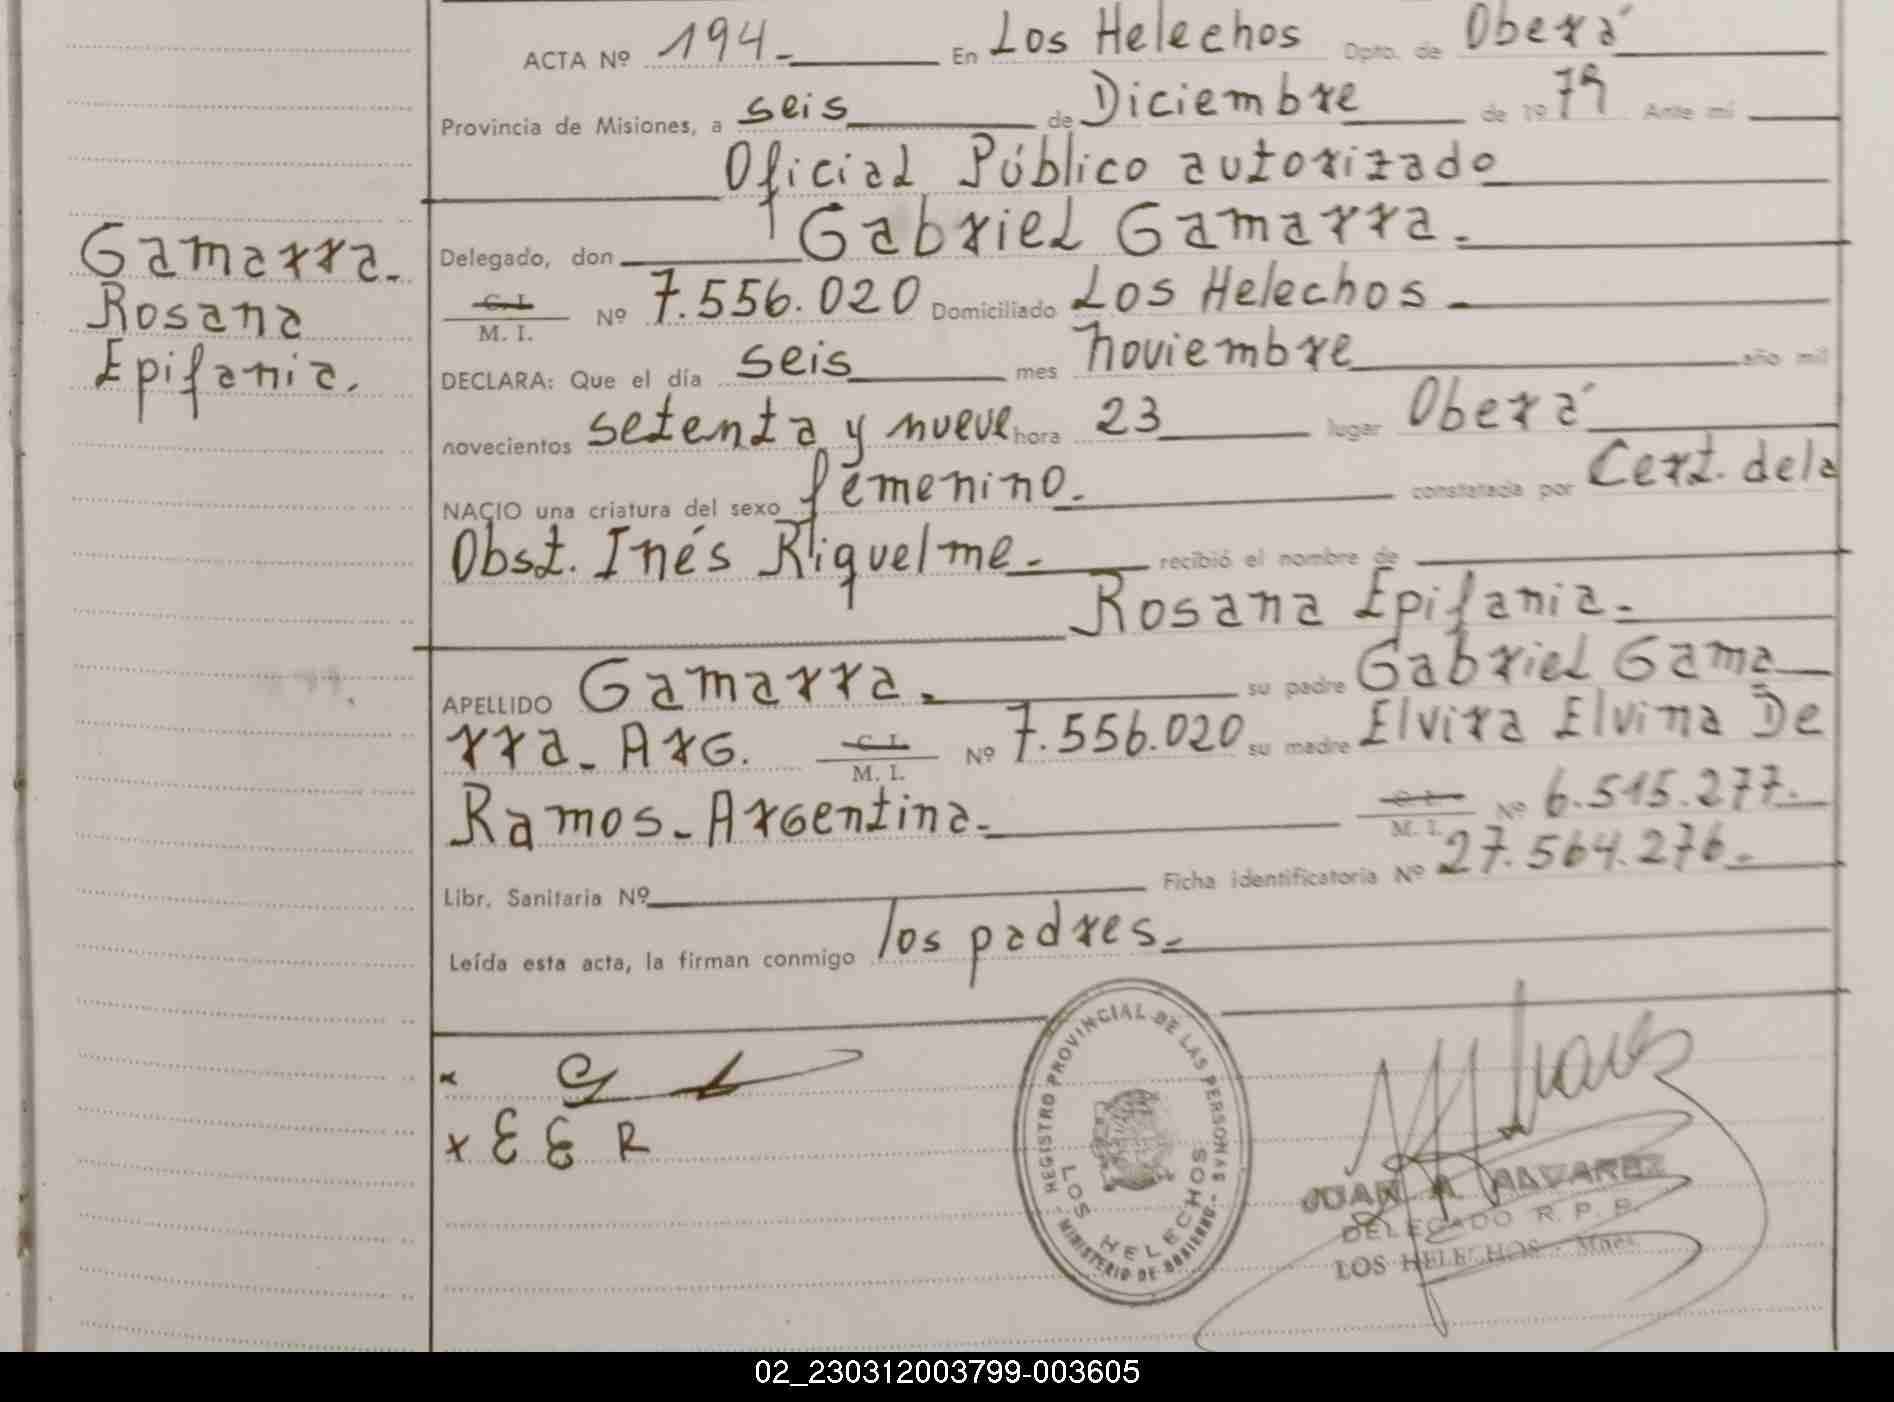 ACTA Nº 194.- En Los Helechos Dpto. de Oberá
Provincia de Misiones, a seis de Diciembre de 1979 Ante mí
Oficial Público autorizado
Delegado, don Gabriel Gamarra.-
C. I.
M. I. Nº 7.556.020 Domiciliado Los Helechos.-
DECLARA: Que el día seis mes noviembre año mil
novecientos setenta y nueve hora 23 lugar Oberá
NACIO una criatura del sexo femenino.- constatada por Cert. de la
Obst. Inés Riquelme.- recibió el nombre de
Rosana Epifania.-
APELLIDO Gamarra.- su padre Gabriel Gama
rra.- Arg. C. I.
M. I. Nº 7.556.020 su madre Elvira Elvina De
Ramos.- Argentina.- C. I.
M. I. Nº 6.515.277.-
Libr. Sanitaria Nº Ficha identificatoria Nº 27.564.276.-
Leída esta acta, la firman conmigo los padres.-
Gamarra.-
Rosana
Epifania.
x
x E E R
REGISTRO PROVINCIAL DE LAS PERSONAS
LOS HELECHOS
- MINISTERIO DE GOBIERNO -
JUAN A. ALVAREZ
DELEGADO R. P. P.
LOS HELECHOS - Mnes.
02_230312003799-003605